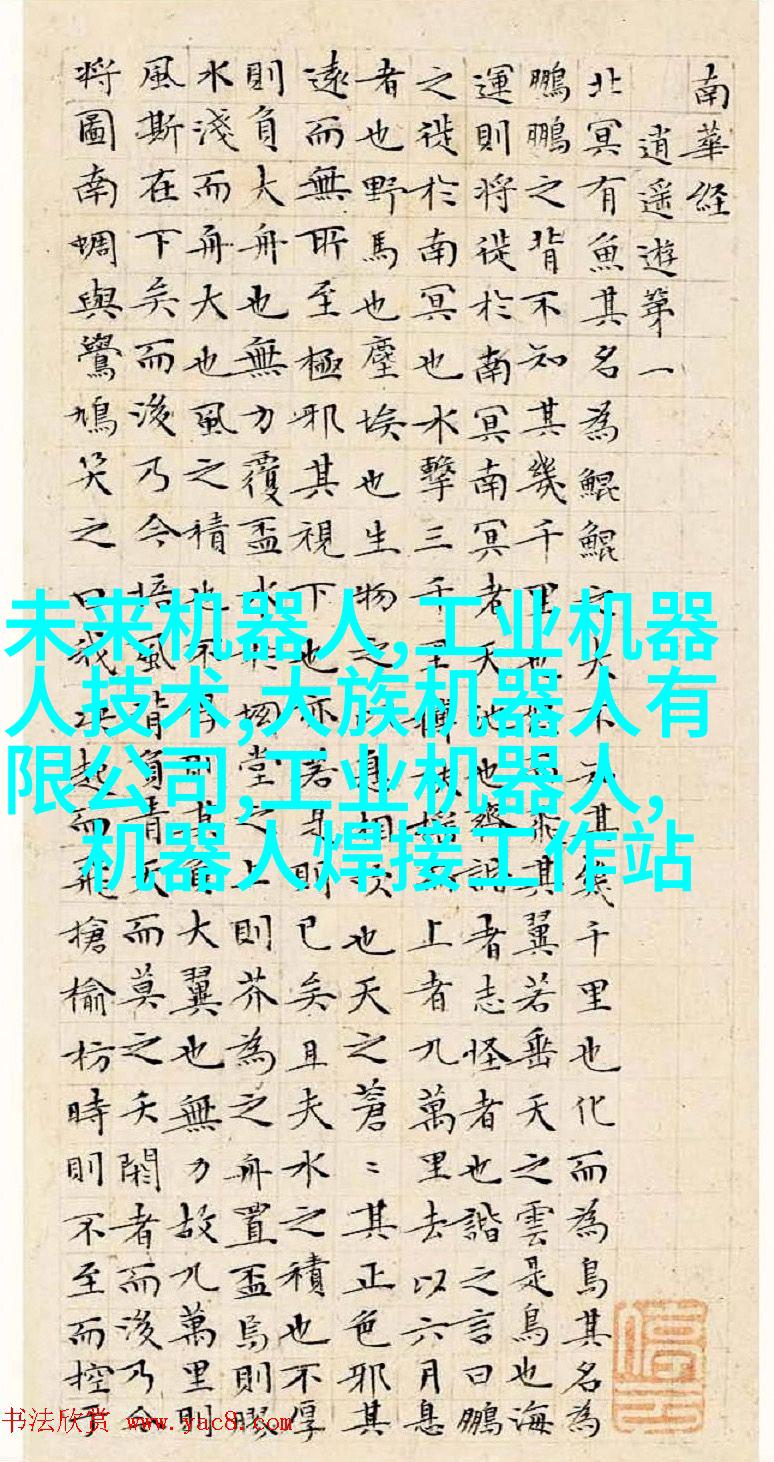 南華経
逍遥遊第一
北冥有魚其名為鯤鯤之大不知其幾千里也化而為鳥其名為
鵬鵬之背不知其幾千里也怒而飛其翼若垂天之雲是鳥也海
運則将徙於南冥南冥者天池也齊諧者志怪者也諧之言曰鵬
之徙於南冥也水擊三千里摶扶搖而上者九萬里去以六月息
者也野馬也塵埃也生物之以息相吹也天之蒼〻其正色邪其
遠而無所至極邪其視下也亦若是則已矣且夫水之積也不厚
則負大舟也無力覆盃水於坳堂之上則芥為之舟置盃焉則膠
水淺而舟大也風之積也不厚則其負大翼也無力故九萬里則
風斯在下矣而後乃今培風背負青天而莫之夭閼者而後乃今
将圖南蜩與鷽鳩笑之曰我决起而飛搶榆枋時則不至而控於
未来机器人,工业机器
人技术,大族机器人有
限公司,工业机器人,
机器人焊接工作站
书法欣赏 www.yac8.com